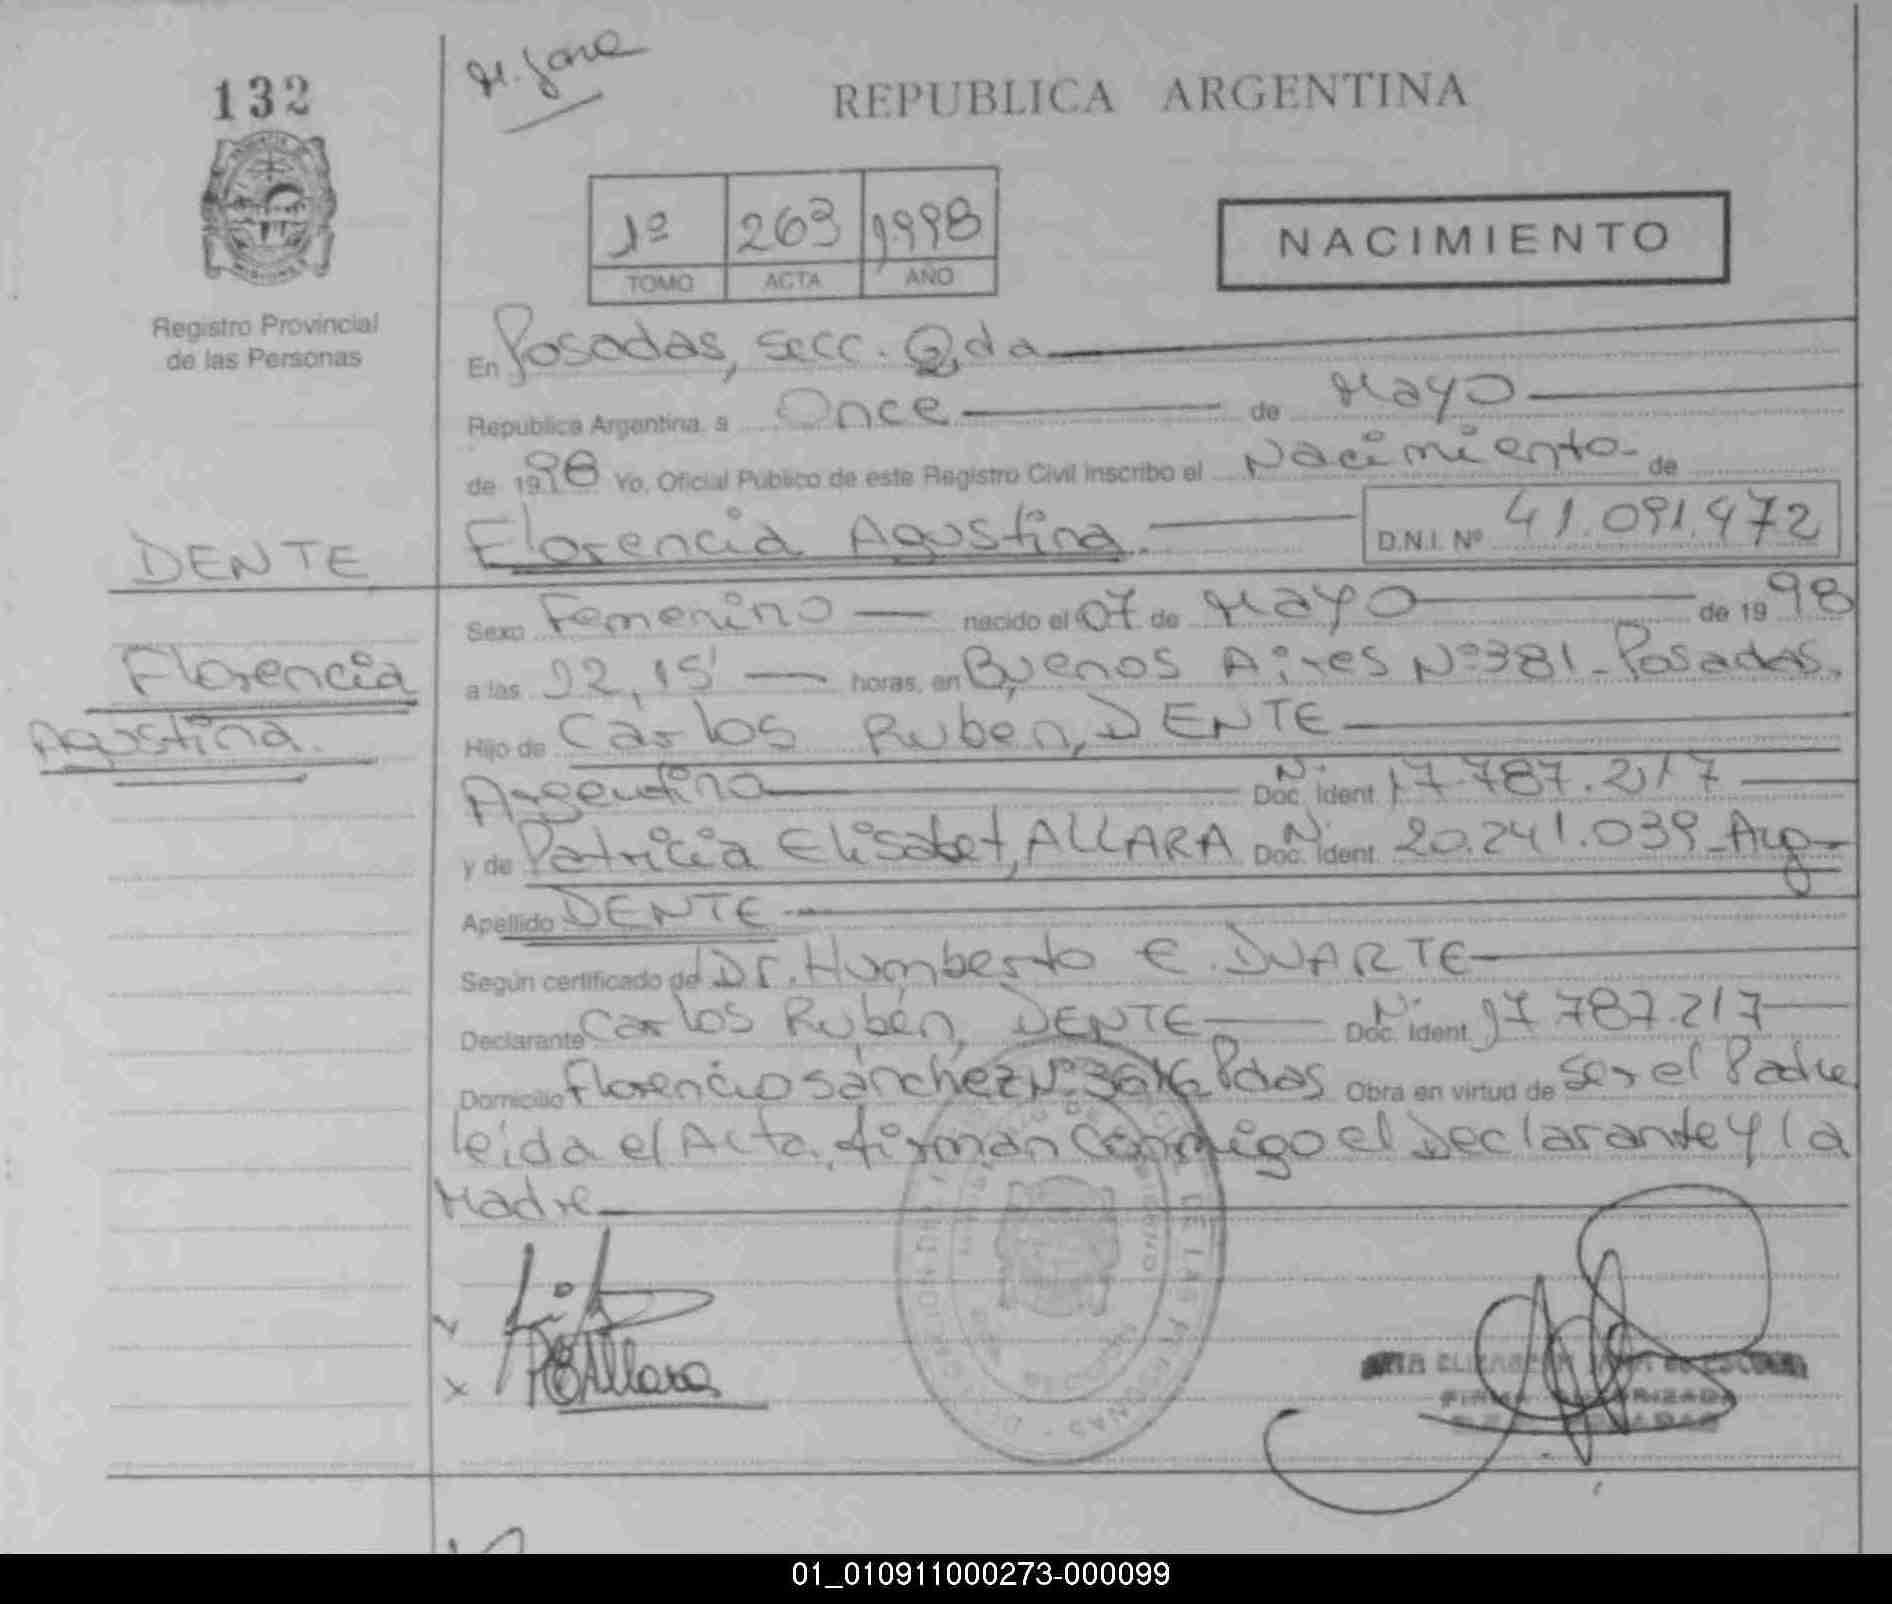 132
REPUBLICA ARGENTINA
1º 263 1998
TOMO ACTA AÑO
NACIMIENTO
Registro Provincial
de las Personas
En Posadas, secc. 2da
Republica Argentina, a Once de Mayo
de 1998 Yo, Oficial Público de este Registro Civil inscribo el Nacimiento de
Florencia Agustina D.N.I. Nº 41.091.472
DENTE
Florencia
Agustina.
Sexo Femenino nacido el 07 de Mayo de 1998
a las 12,15 horas, en Buenos Aires Nº 381 - Posadas.
Hijo de Carlos Ruben, DENTE
Argentino Doc. Ident. 17.787.217
y de Patricia Elisabet, ALLARA Doc. Ident. 20.241.039 - Arg -
Apellido DENTE
Según certificado de Dr. Humberto E. DUARTE
Declarante Carlos Rubén, DENTE Doc. Ident. 17.787.217
Domicilio Florencio Sánchez Nº 3616 Pdas Obra en virtud de ser el Padre
leida el Acta, firman conmigo el Declarante y la
Madre
PEAllara
01_010911000273-000099